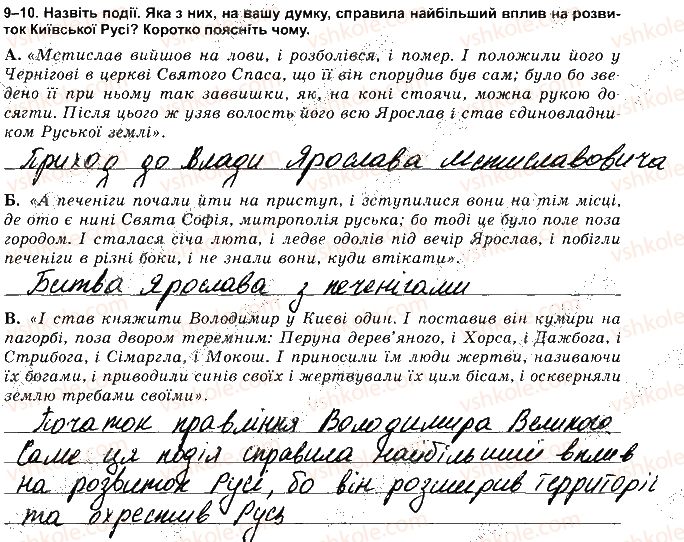 9–10. Назвіть події. Яка з них, на вашу думку, справила найбільший вплив на розви-
ток Київської Русі? Коротко поясніть чому.
А. «Мстислав вийшов на лови, і розболівся, і помер. І положили його у
Чернігові в церкві Святого Спаса, що її він спорудив був сам; було бо зве-
дено її при ньому так заввишки, як, на коні стоячи, можна рукою до-
сягти. Після цього ж узяв волость його всю Ярослав і став єдиновладни-
ком Руської землі».
Приход до Влади Ярослава Мстиславовича
Б. «А печеніги почали йти на приступ, і зступилися вони на тім місці,
де ото є нині Свята Софія, митрополія руська; бо тоді це було поле поза
городом. І сталася січа люта, і ледве одолів під вечір Ярослав, і побігли
печеніги в різні боки, і не знали вони, куди втікати».
Битва Ярослава з печенігами
В. «І став княжити Володимир у Києві один. І поставив він кумири на
пагорбі, поза двором теремним: Перуна дерев'яного, і Хорса, і Дажбога, і
Стрибога, і Сімаргла, і Мокош. І приносили їм люди жертви, називаючи
їх богами, і приводили синів своїх і жертвували їх цим бісам, і оскверняли
землю требами своїми».
Початок правління Володимира Великого
Саме ця подія справила найбільший вплив
на розвиток Русі, бо він розширив территоріі
та охрестив Русь